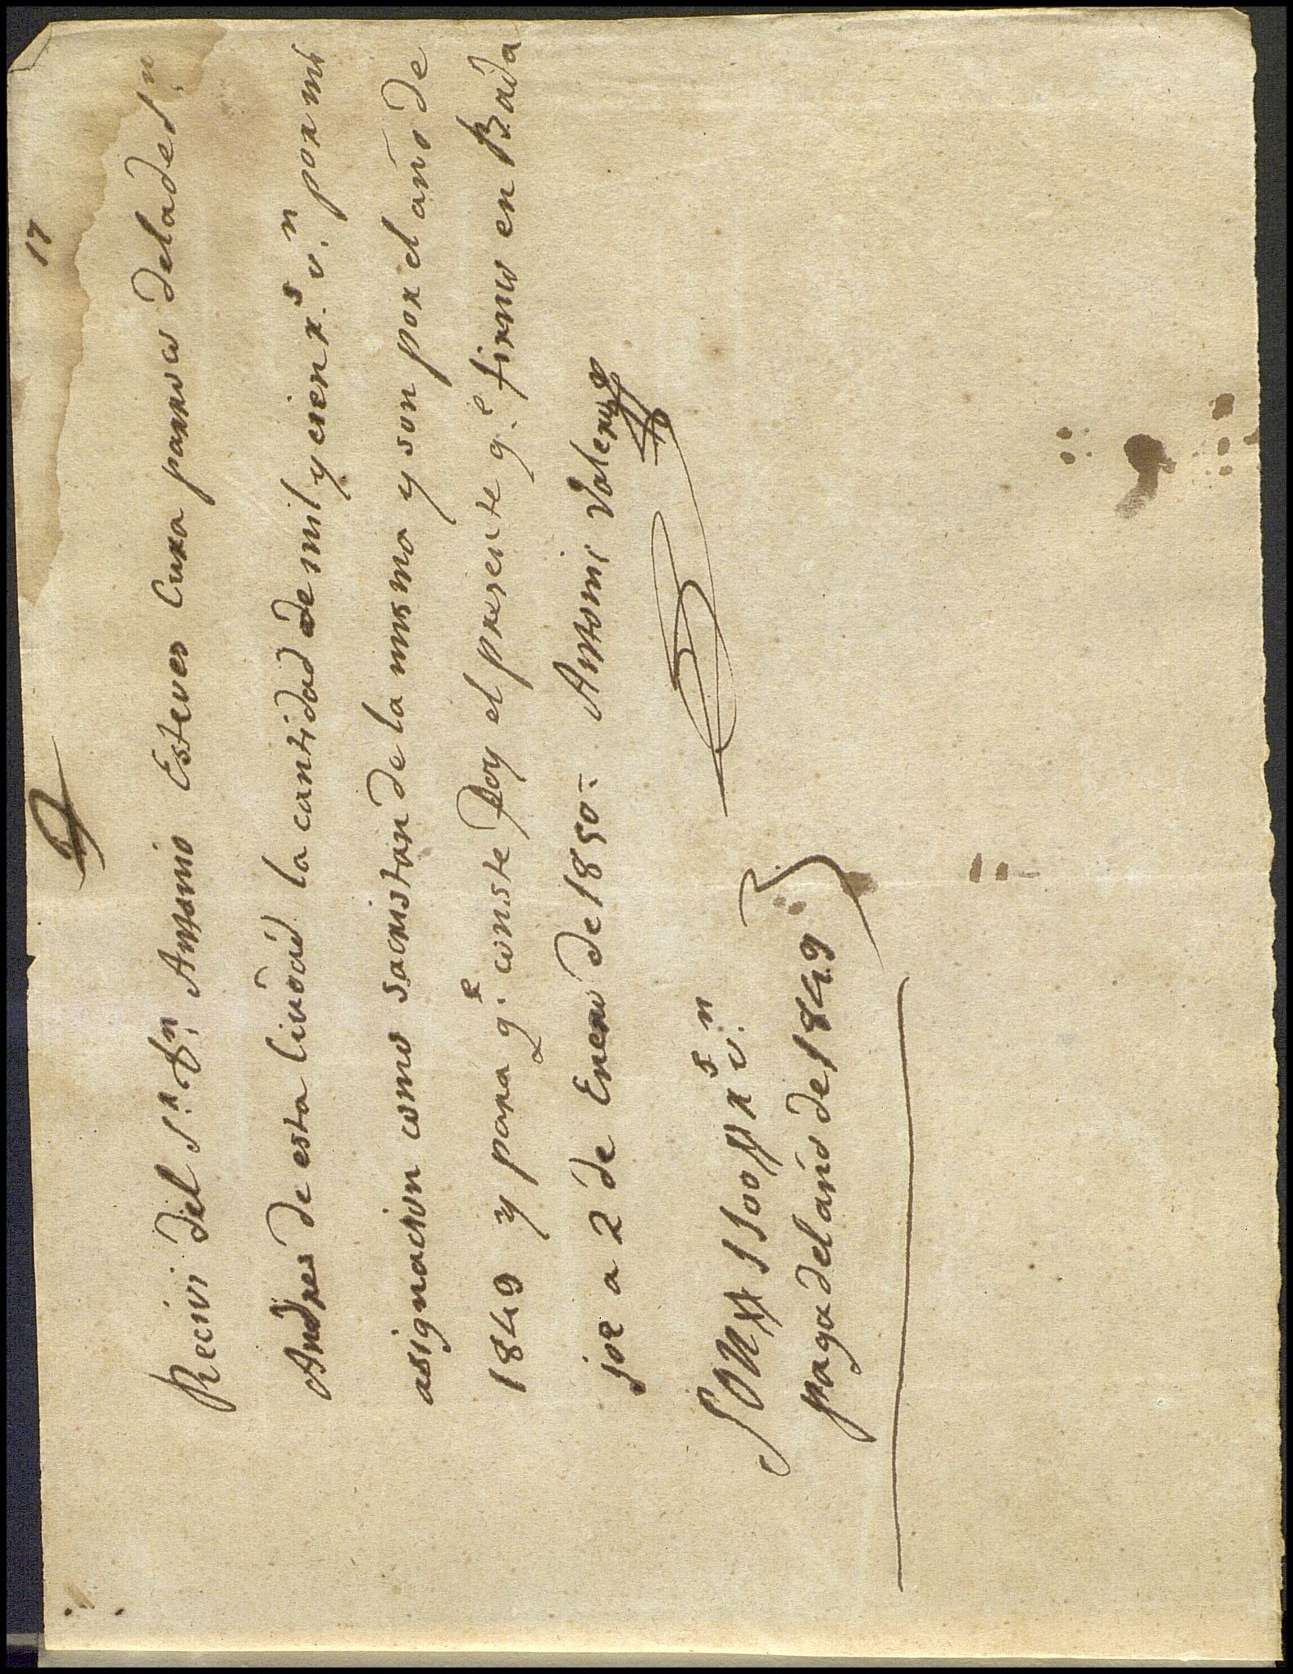 17
Recivi del S.r D.n Antonio Esteves Cura parroco delade S.n
Andres de esta Ciudad la cantidad de mil y cien r.s v.n por mi
asignacion como sacristan de la misma y son por el año de
1849 y para q.e conste doy el presente q.e firmo en Bada
joz a 2 de Enero de 1850=
Antonio Valenz
Son 1100 r.s v.n
paga del año de 1849